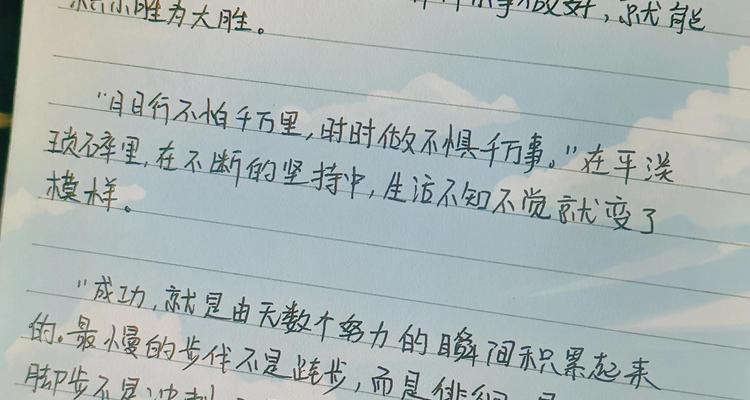 积小胜为大胜。 做好,就能
"日日行不怕千万里,时时做不惧千万事。"在平淡
琐碎里,在不断的坚持中,生活不知不觉就变了
模样。
"成功,就是由无数个努力的瞬间积累起来
的。最慢的步伐不是跬步,而是徘徊
脚步不是冲刺